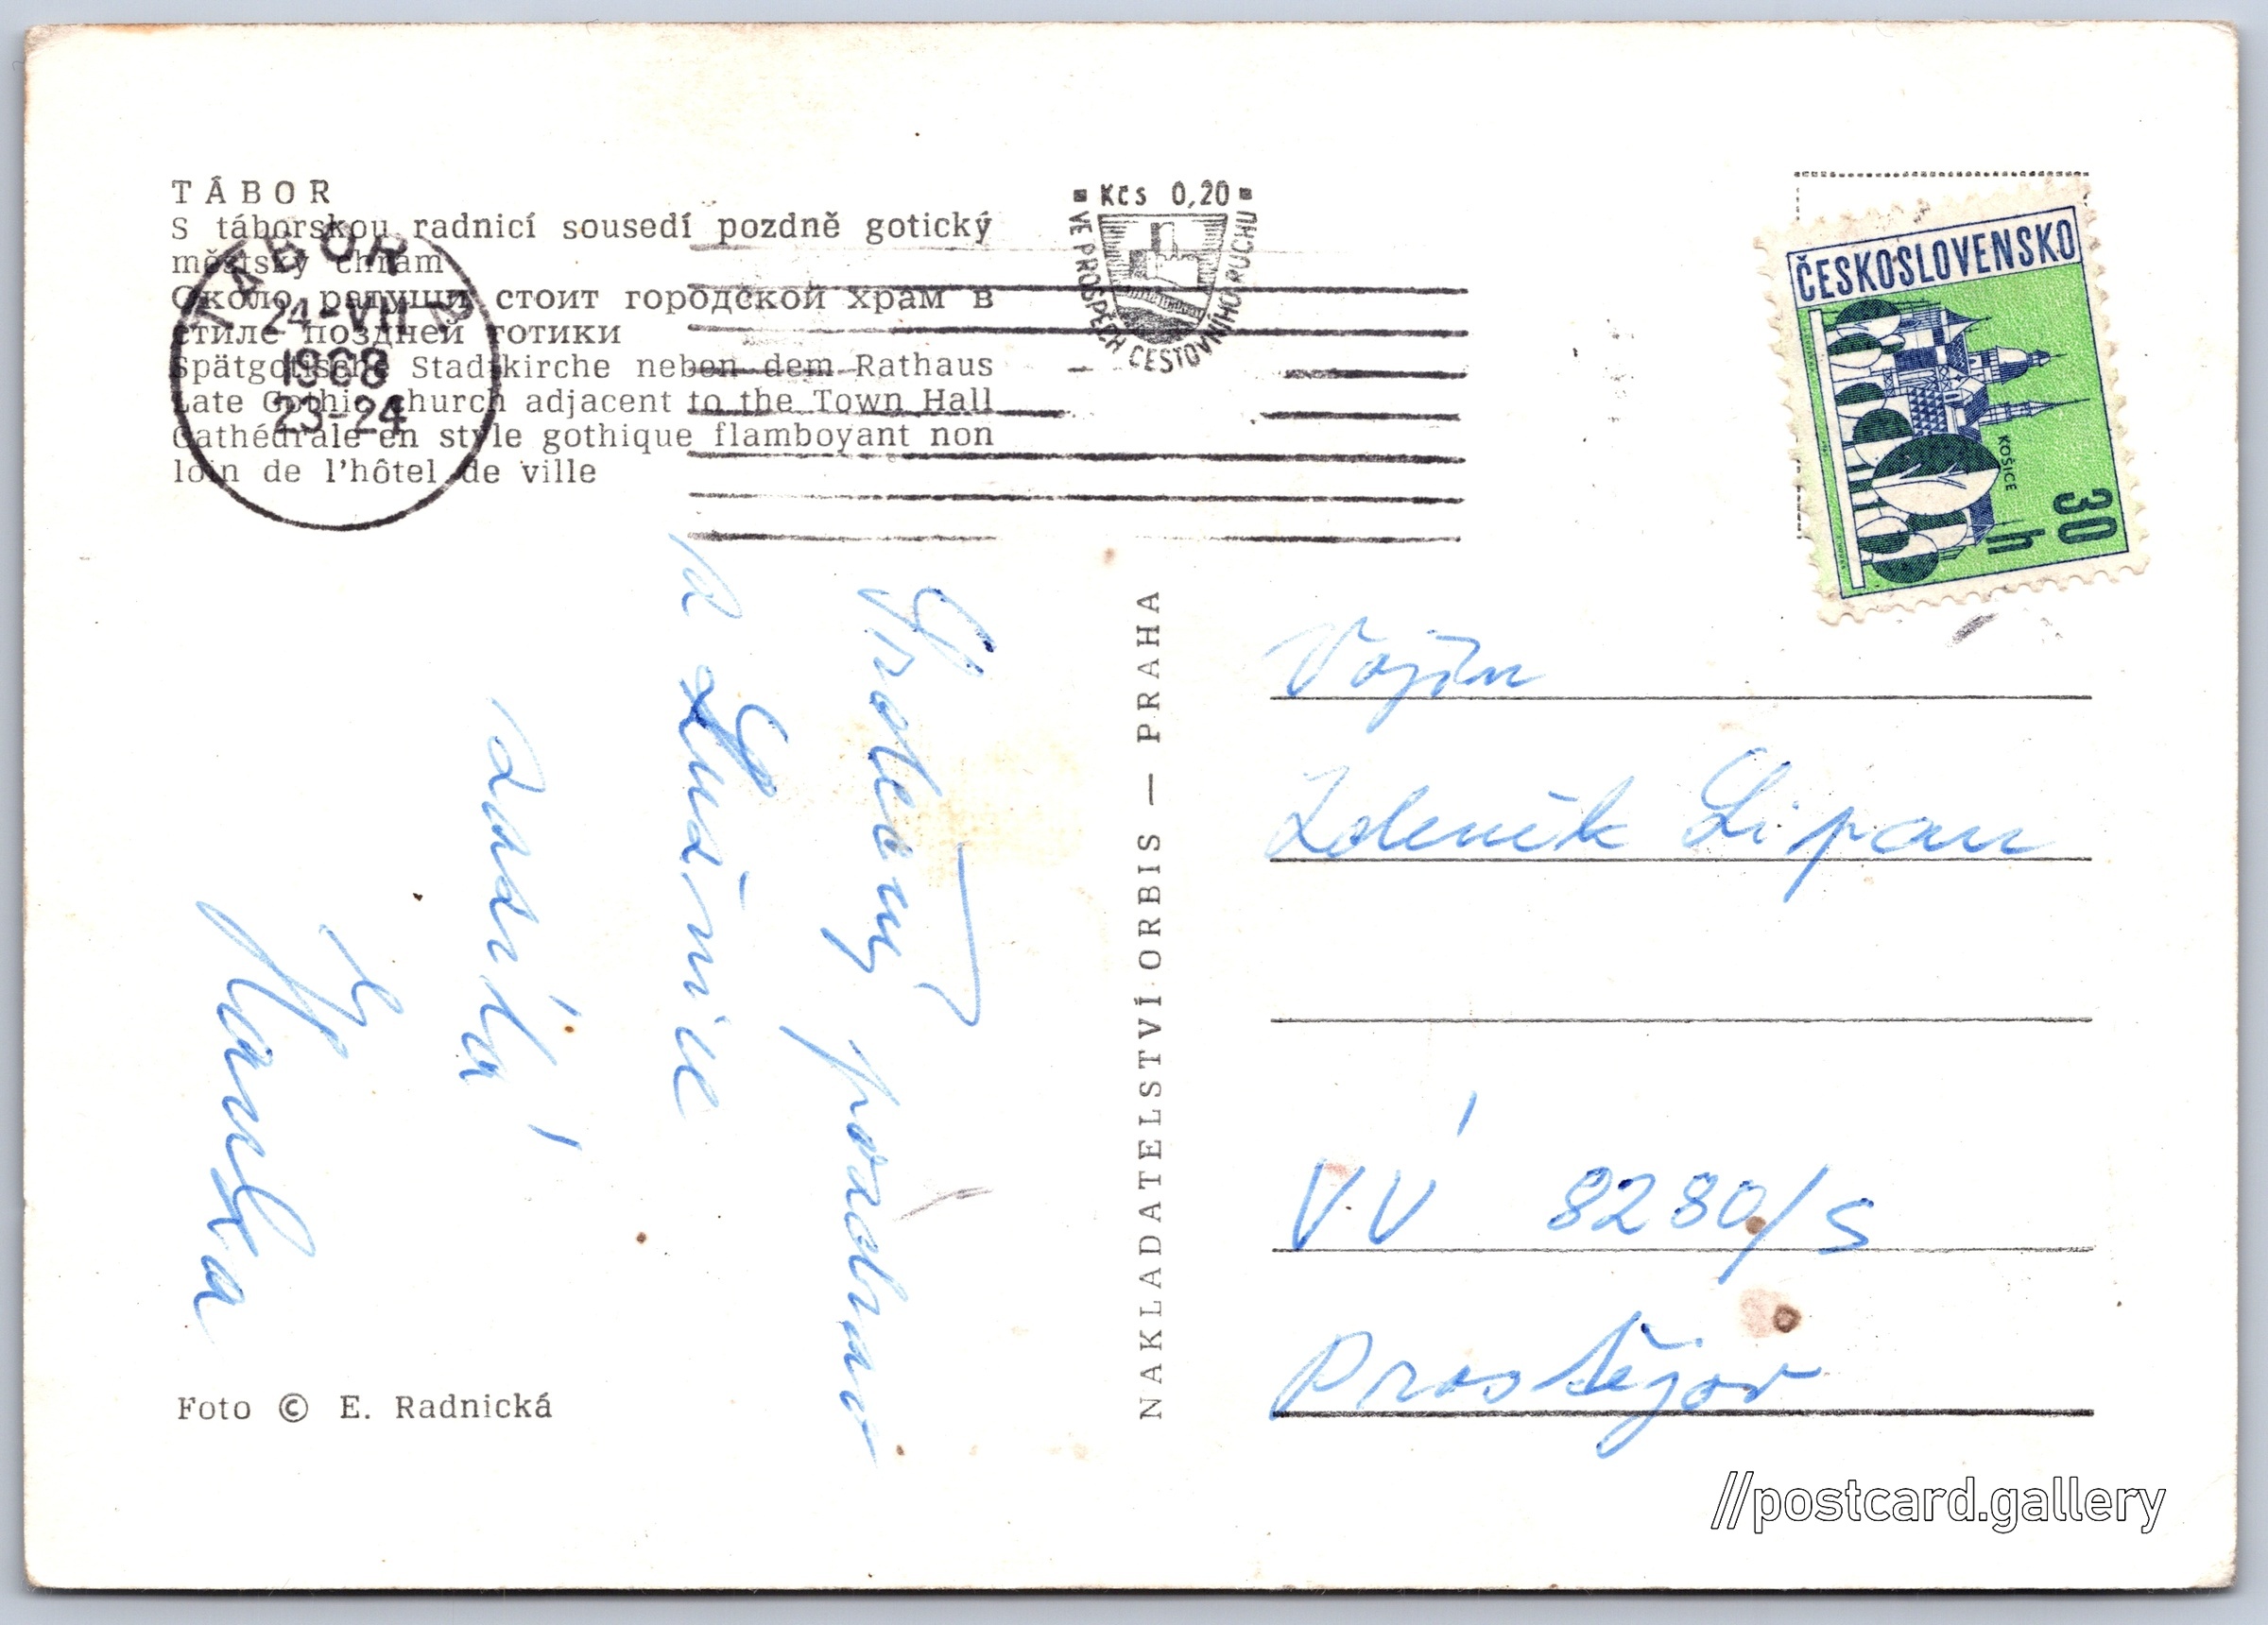 TÁBOR
S táborskou radnicí sousedí pozdně gotický
městský chrám
Около ратуши стоит городской храм в
стиле поздней готики
Spätgotische Stadtkirche neben dem Rathaus
Late Gothic church adjacent to the Town Hall
Cathédrale en style gothique flamboyant non
loin de l'hôtel de ville
TÁBOR
24-VII
1968
23-24
Kčs 0,20
VE PROSPĚCH CESTOVNÍHO RUCHU
ČESKOSLOVENSKO
KOŠICE
30 h
Srdečný pozdrav
z Lužnice
zasílá
Hanka
NAKLADATELSTVÍ ORBIS — PRAHA
Vojín
Zdeněk Lipan
VÚ 8280/S
Prostějov
Foto © E. Radnická
//postcard.gallery